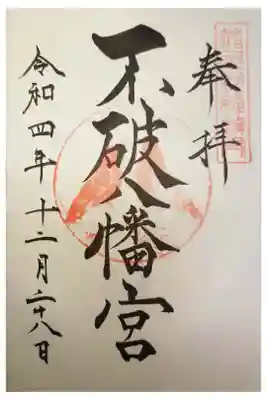 奉拝
不破八幡宮
令和四年十二月二十八日